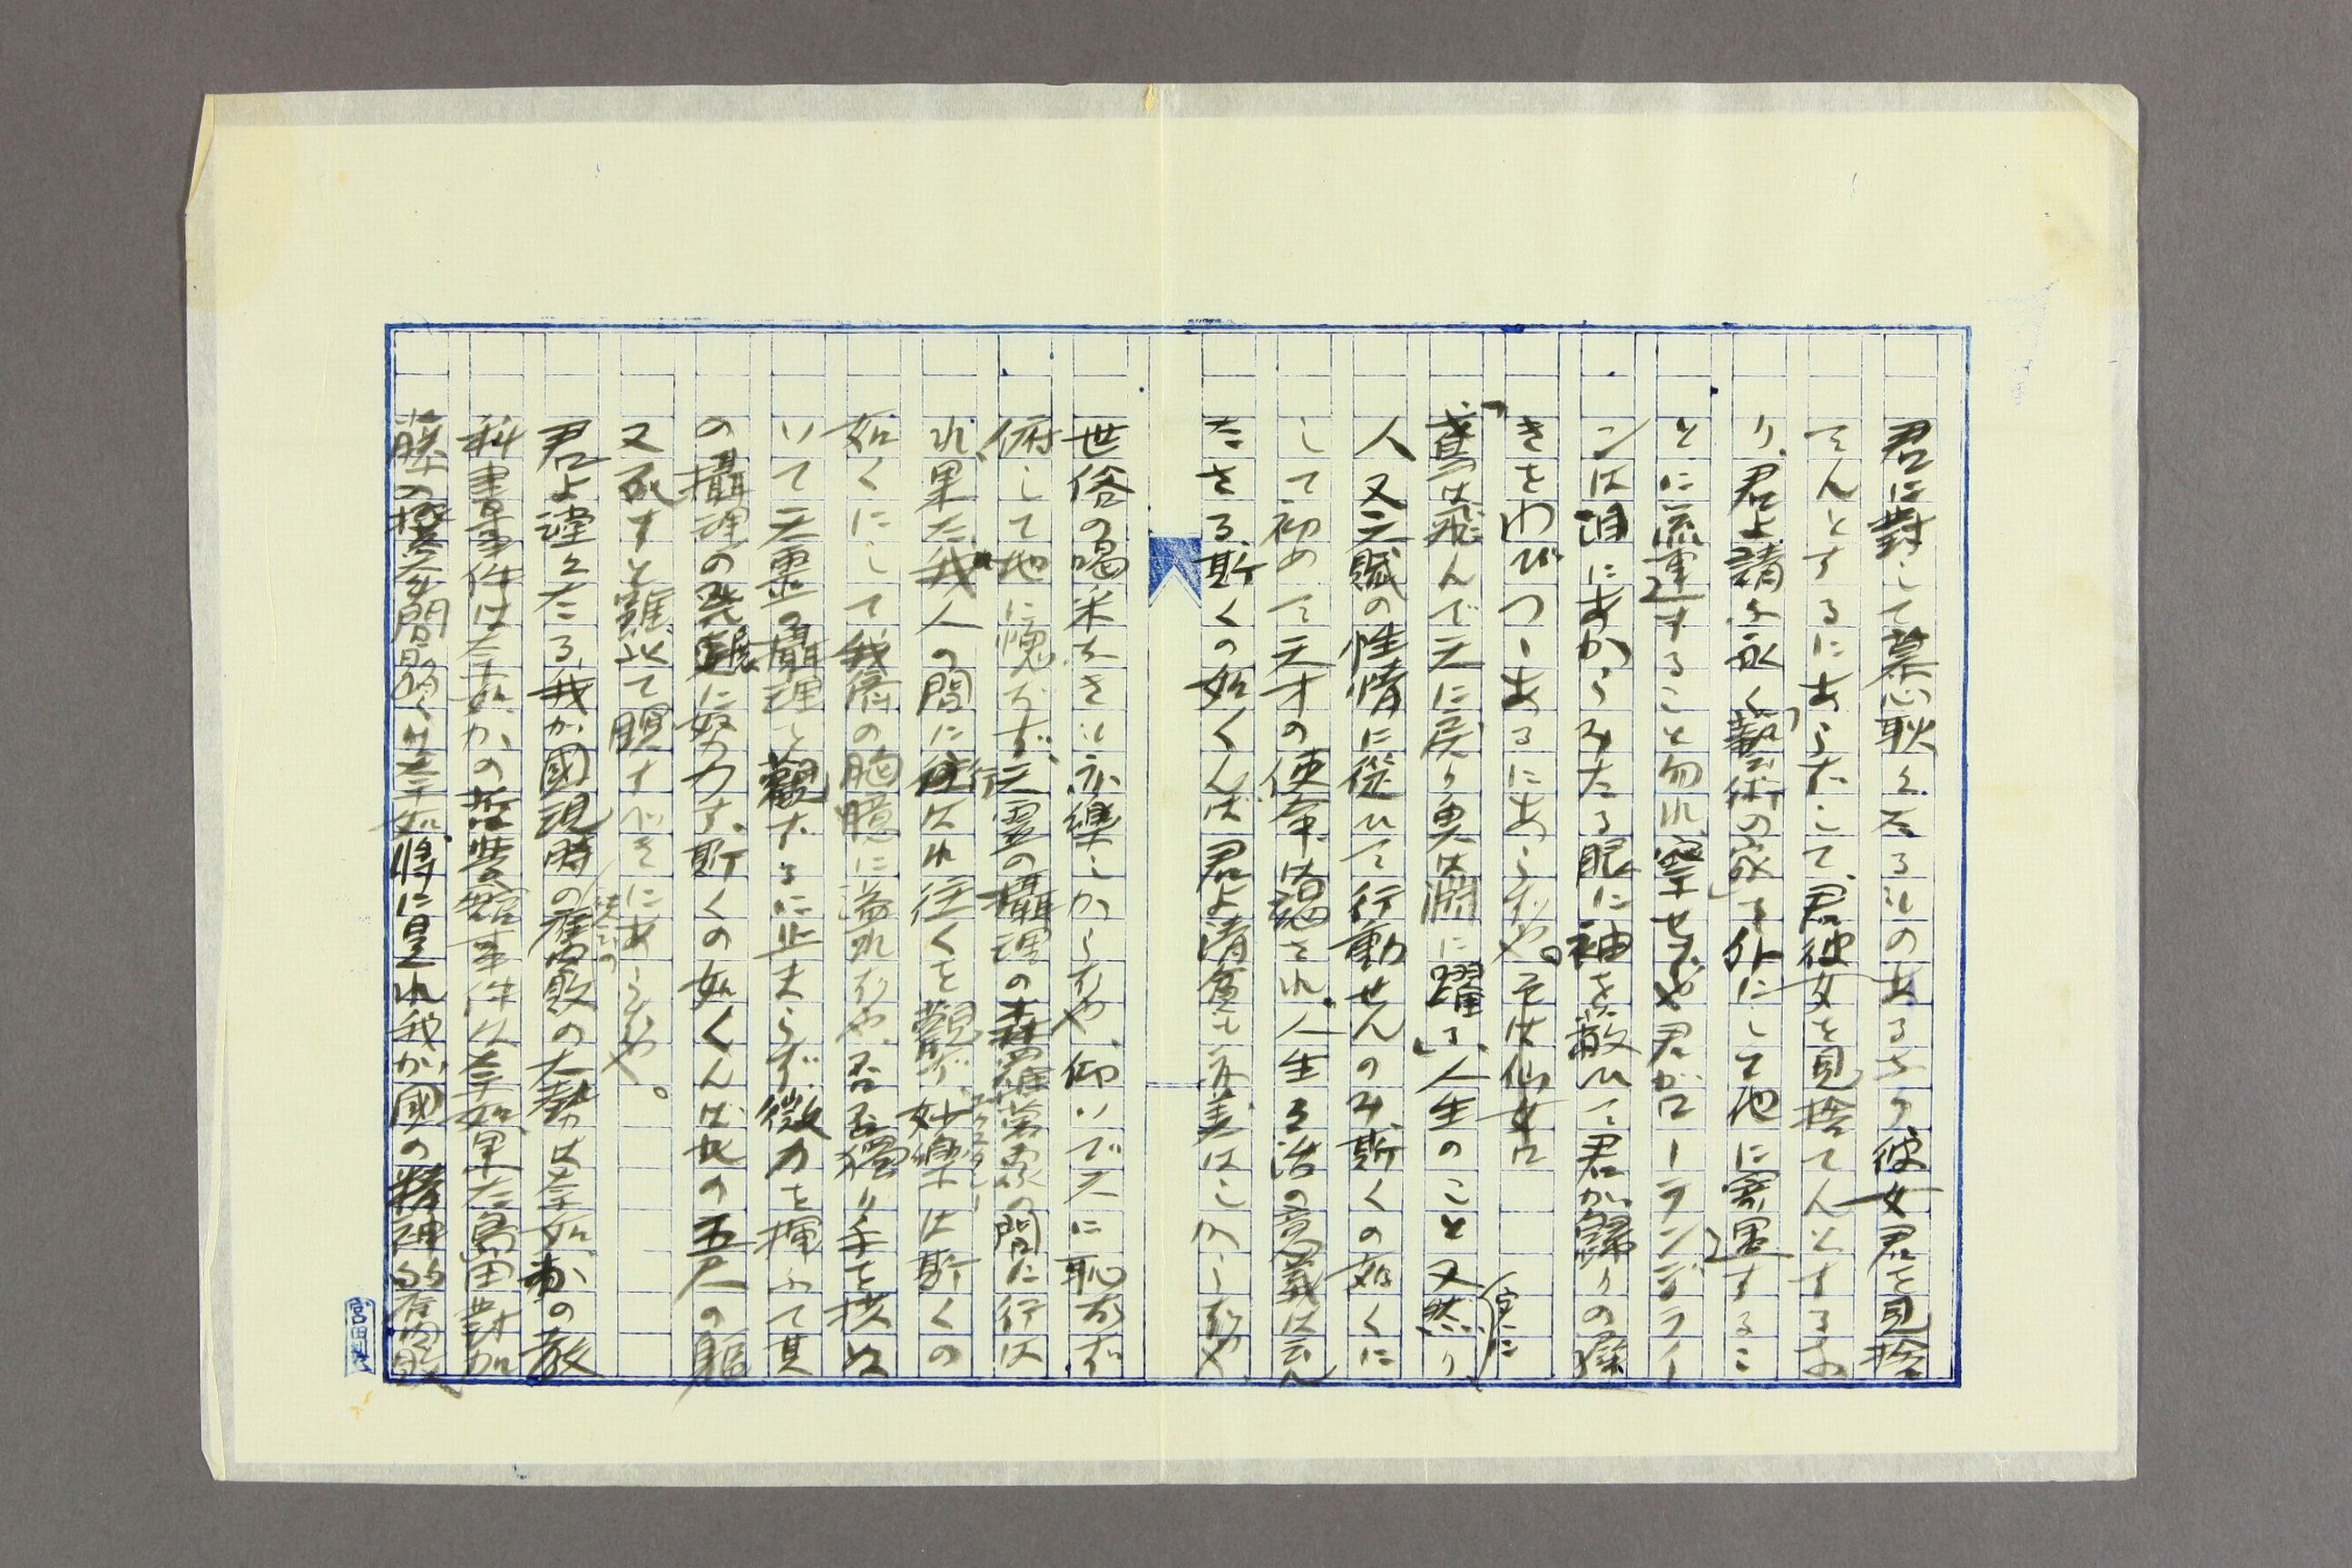 君に對して慕心耿々たるものあるあり、彼女君を見捨
てんとするにあらずして、君彼女を見捨てんとするな
り、君よ請ふ永く「藝術の家」を外にして他に客寓するこ
とに流連すること勿れ、察せずや君がローランデライー
ンは泪にあからみたる眼に袖を蔽ひて君が歸りの遅
きをわびつゝあるにあらずや。そは仙女に
「鳶は飛んで天に戻り魚は淵に躍る」、人生のこと又実に然り、
人又天賦の性情に從ひて行動せんのみ、斯くの如くに
して初めて天才の使命は遂され、人生る活の意義は云ん
たさる、斯くの如くんば君よ清貧も亦美はしからずや、
世俗の喝采なきも亦樂しからずや、仰いで天に恥おず
俯して地に愧おず、天靈の攝理の森羅萬象の間に行は
れ、果た我人の間に行はれ往くを觀ず、妙樂は斯くの
エクスタシー
如くにして我儕の胸臆に溢れずや、否否獨り手を拱ぬ
いて天靈の攝理を觀ずるに止まらず、微力を揮ふて其
の攝理の発展に努力す、斯くの如くんば此の五尺の軀
又死すと雖以て瞑すべきにあらずや。
君よ謹々たる我が國現時の社会の腐敗の大勢は奈如、かの教
科書事件は奈如、かの哲學館事件は奈如、果た島田對加
藤の擾々問題は奈如、將に是れ我が國の精神的腐敗
宮田製